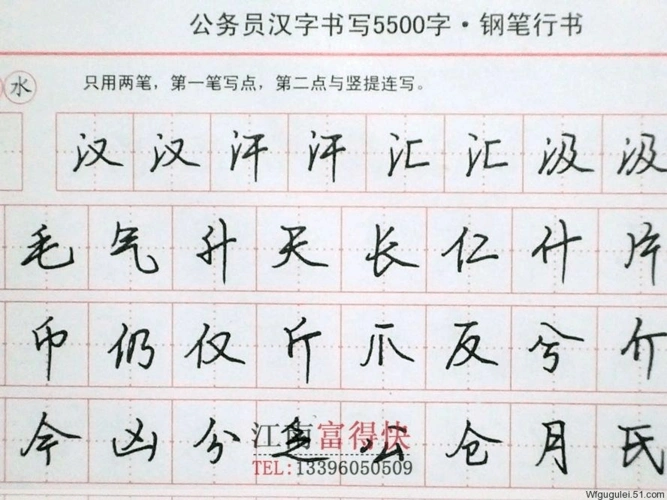 公务员汉字书写5500字·钢笔行书
水 只用两笔，第一笔写点，第二点与竖提连写。
汉 汉 汗 汗 汇 汇 汲 汲
毛 气 升 夭 长 仁 什 片
币 仍 仅 斤 爪 反 兮 介
今 凶 分 公 仓 月 氏
富得快
TEL:13396050509
Wfgugulei.51.com